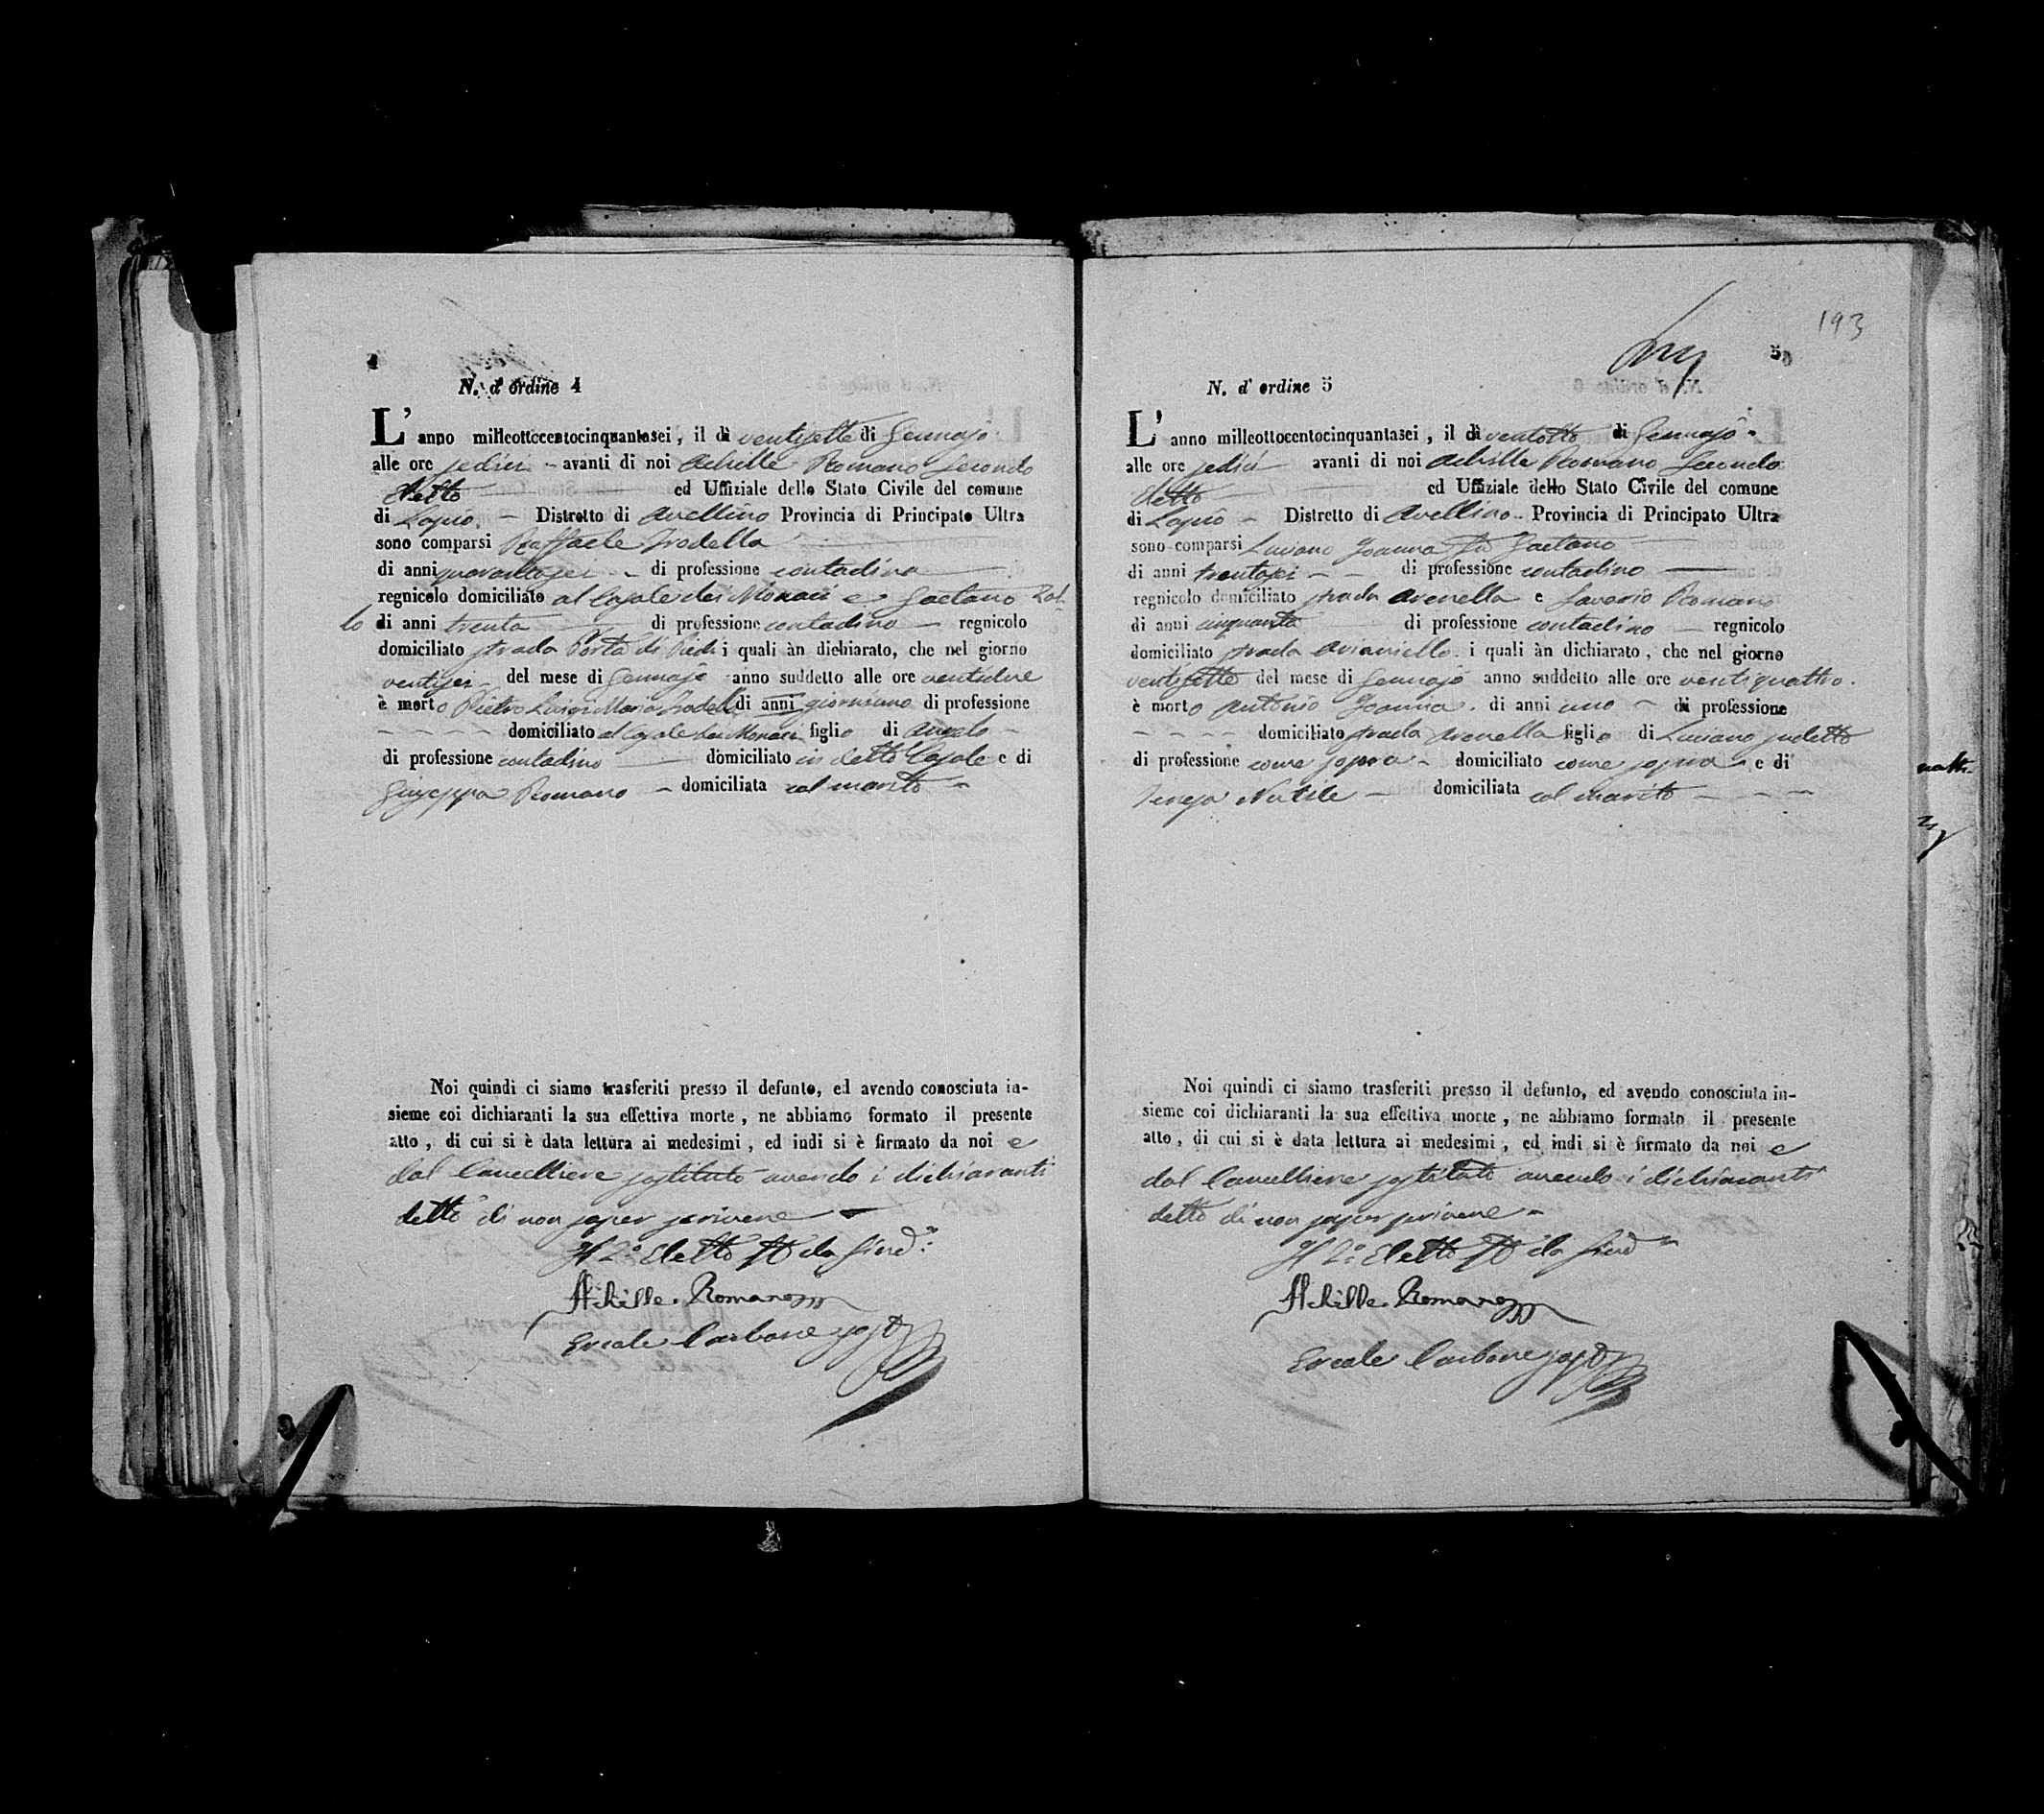 4
N. d'ordine 4
L'anno milleottocentocinquantasei, il dì ventisette di Gennajo
alle ore sedici - avanti di noi Achille Romano Secondo
eletto ed Uffiziale dello Stato Civile del comune
di Lapio - Distretto di Avellino Provincia di Principato Ultra
sono comparsi Raffaele
di anni quarantasei - di professione contadino
regnicolo domiciliato al Casale dei Monaci e Gaetano Zol-
lo di anni trenta di professione contadino - regnicolo
domiciliato strada Porta di Piedi i quali àn dichiarato, che nel giorno
ventisei - del mese di Gennajo anno suddetto alle ore ventidue
è morto Pietro Luigi Maria di anni giorni uno di professione
- - - - domiciliato al Casale dei Monaci figlio di Angelo -
di professione contadino domiciliato in detto Casale e di
Giuseppa Romano - domiciliata col marito -
Noi quindi ci siamo trasferiti presso il defunto, ed avendo conosciuta in-
sieme coi dichiaranti la sua effettiva morte, ne abbiamo formato il presente
atto, di cui si è data lettura ai medesimi, ed indi si è firmato da noi e
dal Cancelliere sostituto avendo i dichiaranti
detto di non saper scrivere -
Il 2° Eletto ff da Sind.°
Achille Romano
Ercole Carbone sost
193
5
N. d'ordine 5
L'anno milleottocentocinquantasei, il dì ventotto di Gennajo -
alle ore sedici avanti di noi Achille Romano Secondo
eletto ed Uffiziale dello Stato Civile del comune
di Lapio - Distretto di Avellino - Provincia di Principato Ultra
sono comparsi Luciano Joanna fu Gaetano
di anni trentasei - - di professione contadino
regnicolo domiciliato strada Arenella e Saverio Romano
di anni cinquanta di professione contadino - regnicolo
domiciliato strada i quali àn dichiarato, che nel giorno
ventisette del mese di Gennajo anno suddetto alle ore ventiquattro.
è morto Antonio Joanna. di anni uno - di professione
- - - - domiciliato strada Arenella figlio di Luciano sudetto
di professione come sopra - domiciliato come sopra - e di
Teresa Nutile - domiciliata col marito - - - -
Noi quindi ci siamo trasferiti presso il defunto, ed avendo conosciuta in-
sieme coi dichiaranti la sua effettiva morte, ne abbiamo formato il presente
atto, di cui si è data lettura ai medesimi, ed indi si è firmato da noi e
dal Cancelliere sostituto avendo i dichiaranti
detto di non saper scrivere -
Il 2° Eletto ff da Sind°
Achille Romano
Ercole Carbone sost